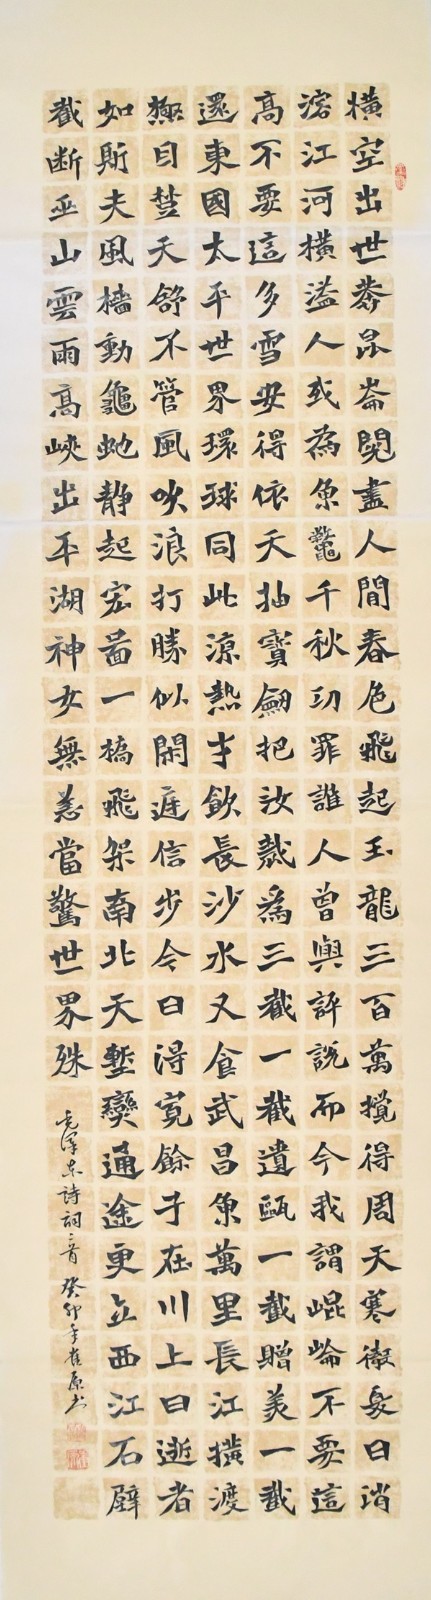 橫空出世莽昆崙閱盡人間春色飛起玉龍三百萬攪得周天寒徹夏日消
溶江河橫溢人或為魚鼈千秋功罪誰人曾與評説而今我謂崐崘不要這
高不要這多雪安得依天抽寶劍把汝裁爲三截一截遺甌一截贈美一截
還東國太平世界環球同此涼熱才飲長沙水又食武昌魚萬里長江橫渡
極目楚天舒不管風吹浪打勝似閑庭信步今日得寬餘子在川上曰逝者
如斯夫風檣動龜虵静起宏啚一橋飛架南北天塹變通途更立西江石壁
截断巫山雲雨高峽出平湖神女無恙當驚世界殊
毛澤东詩詞二首 癸卯年崔原书